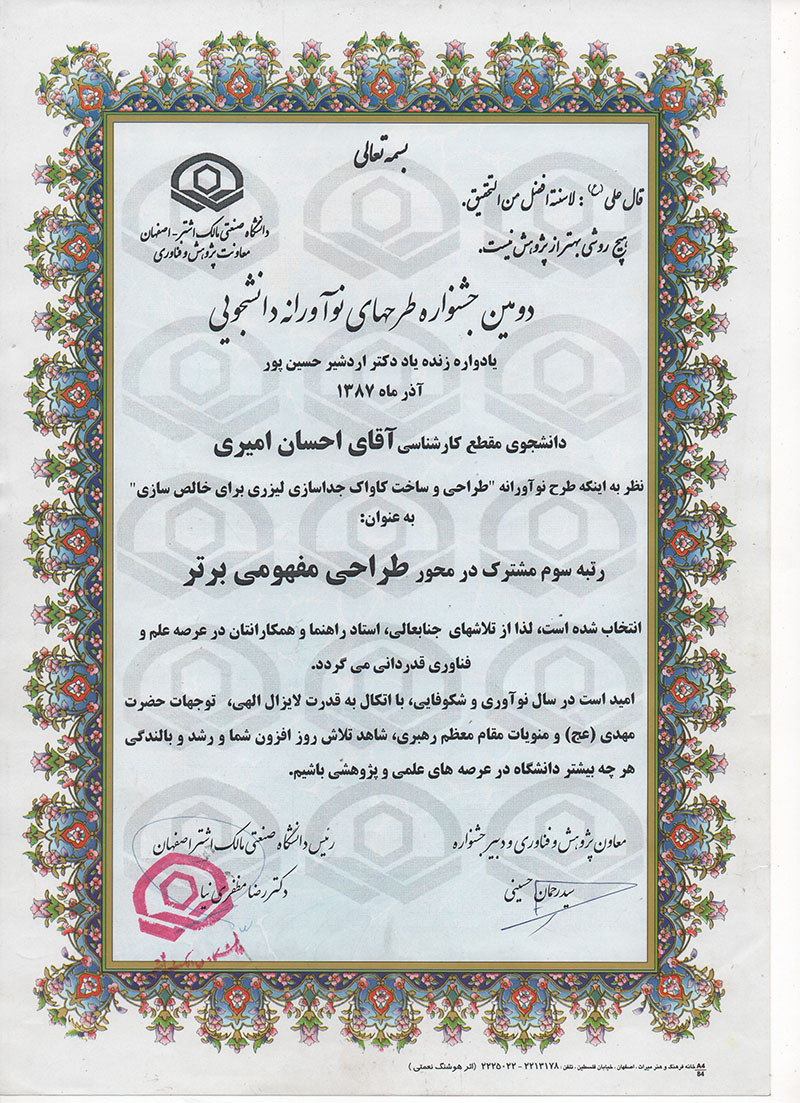 بسمه تعالی
قال علی (ع) : لاسنة افضل من التحقیق.
هیچ روشی بهتر از پژوهش نیست.
دانشگاه صنعتی مالک اشتر - اصفهان
معاونت پژوهش و فناوری
دومین جشنواره طرحهای نوآورانه دانشجویی
یادواره زنده یاد دکتر اردشیر حسین پور
آذر ماه ۱۳۸۷
دانشجوی مقطع کارشناسی آقای احسان امیری
نظر به اینکه طرح نوآورانه "طراحی و ساخت کاواک جداسازی لیزری برای خالص سازی"
به عنوان:
رتبه سوم مشترک در محور طراحی مفهومی برتر
انتخاب شده است، لذا از تلاشهای جنابعالی، استاد راهنما و همکارانتان در عرصه علم و
فناوری قدردانی می گردد.
امید است در سال نوآوری و شکوفایی، با اتکال به قدرت لایزال الهی، توجهات حضرت
مهدی (عج) و منویات مقام معظم رهبری، شاهد تلاش روز افزون شما و رشد و بالندگی
هر چه بیشتر دانشگاه در عرصه های علمی و پژوهشی باشیم.
معاون پژوهش و فناوری و دبیر جشنواره
سیدرحمان حسینی
رئیس دانشگاه صنعتی مالک اشتر اصفهان
دکتر رضا مظفری نیا
A4 خانه فرهنگ و هنر میراث . اصفهان . خیابان فلسطین . تلفن : ۲۲۱۳۱۷۸ - ۲۲۲۵۰۲۲ (اثر هوشنگ نعمتی)
84